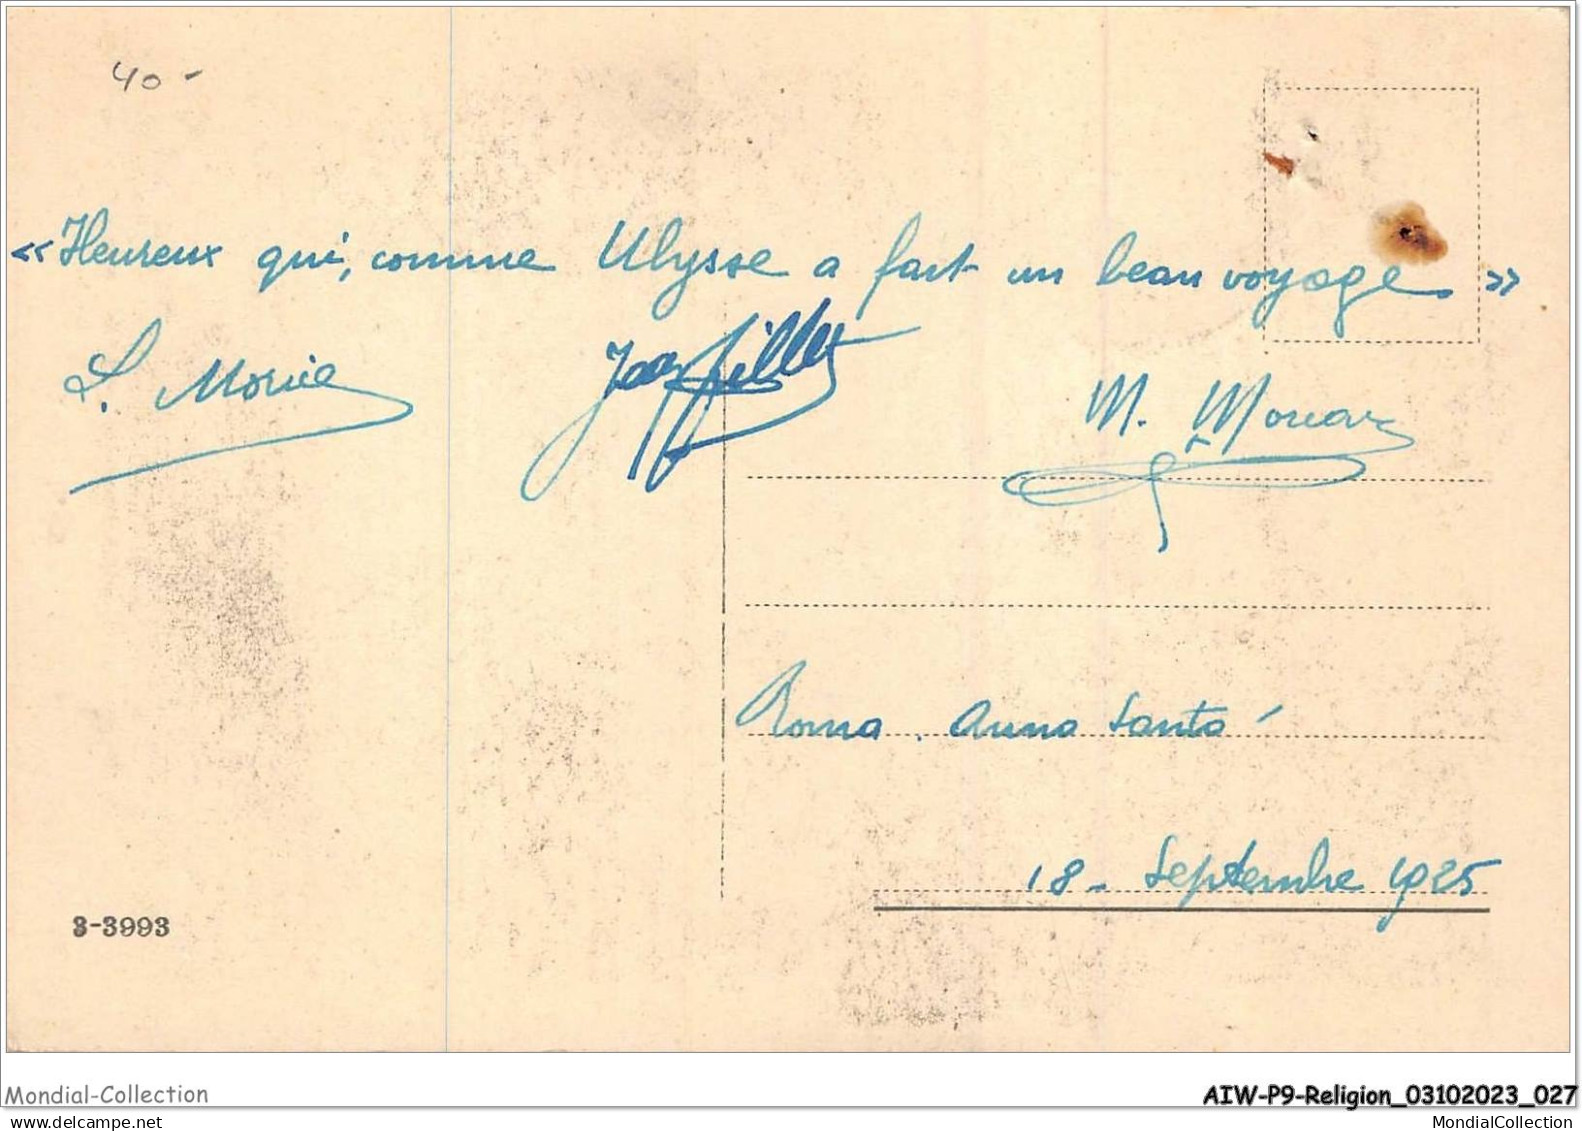 40-
«Heureux qui, comme Ulysse a fait un beau voyage. »
Morice
M.
Roma. Anno Santo
18 - Septembre 1925
3-3993
Mondial-Collection
AIW-P9-Religion_03102023_027
MondialCollection